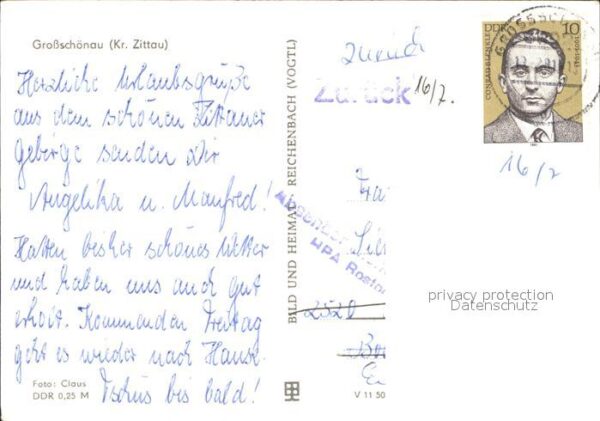 Großschönau (Kr. Zittau)
Herzliche Urlaubsgrüße
aus dem schönen Zittauer
Gebirge senden Dir
Angelika u. Manfred!
Hatten bisher schönes Wetter
und haben uns auch gut
erholt. Kommenden Freitag
geht es wieder nach Hause.
Tschüs bis bald!
Foto: Claus
DDR 0,25 M
BILD UND HEIMAT REICHENBACH (VOGTL)
V 11 50
zurück
Zurück
16/7.
DDR
10
CONRAD BLENKLE
1901-1943
GROSSSCH
16/7
Absender
HPA Rostoc
2520
privacy protection
Datenschutz